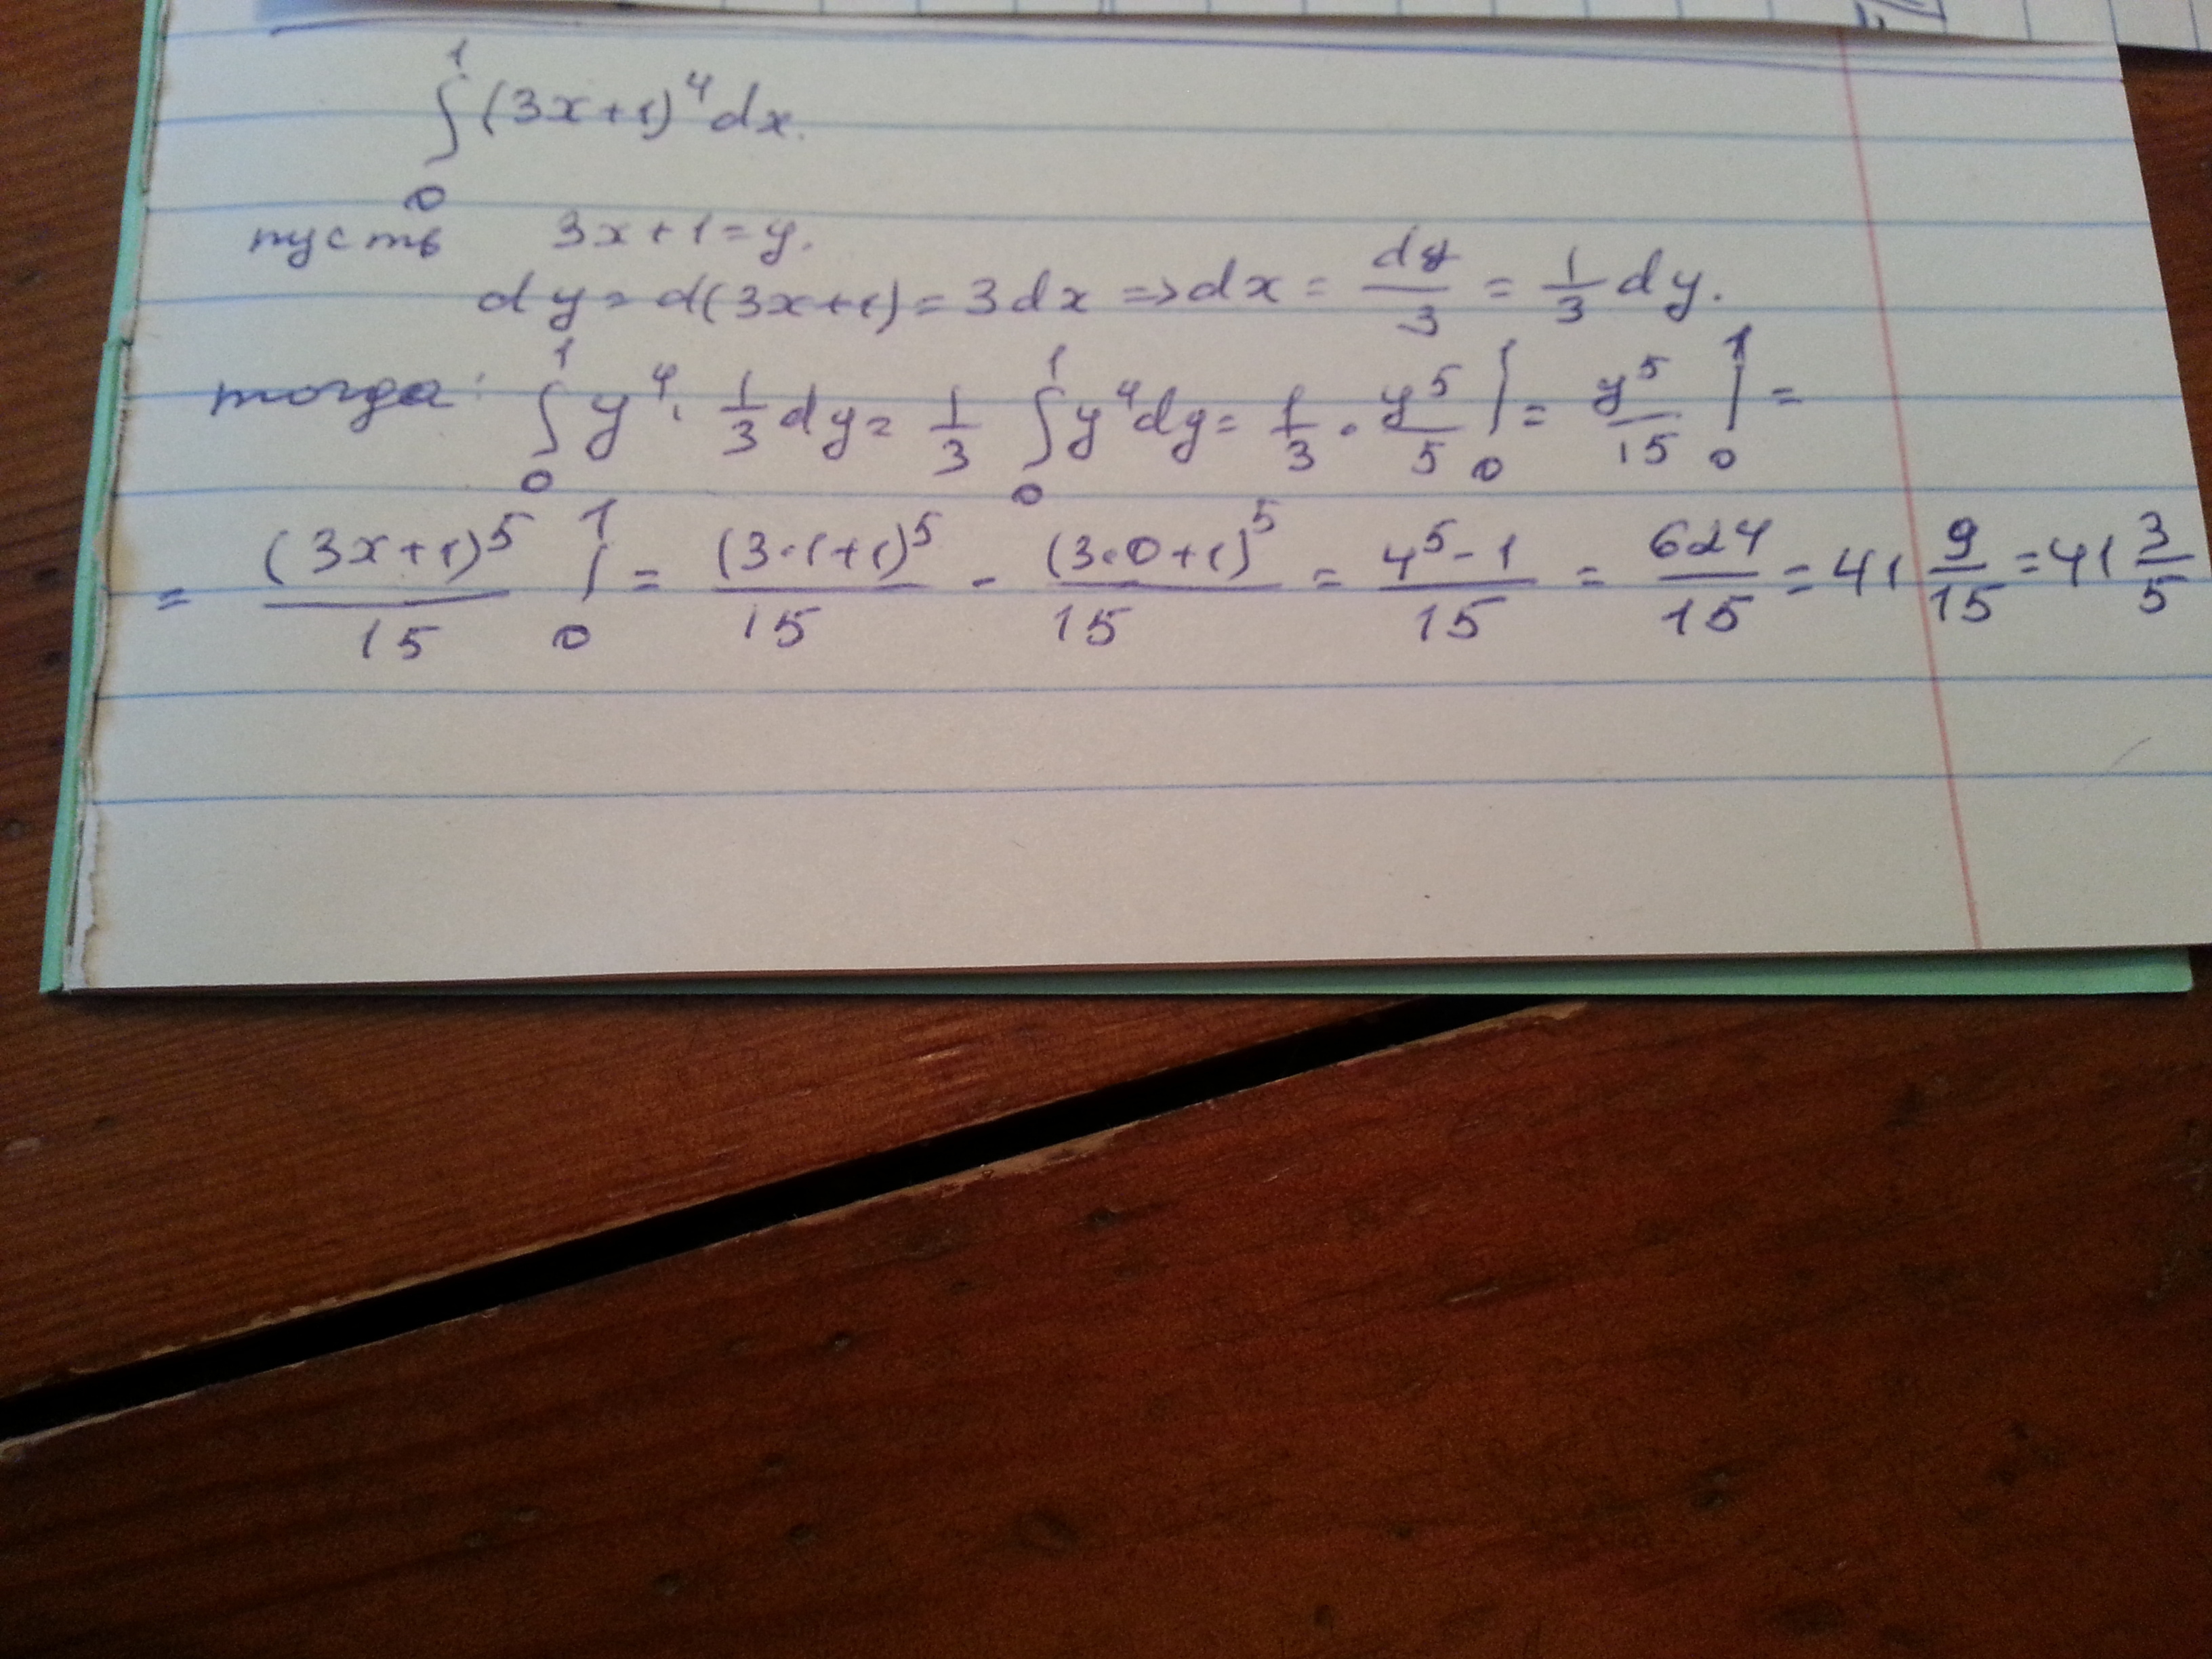 ∫₀¹ (3x+1)⁴ dx.
пусть 3x+1=y.
dy = d(3x+1) = 3dx => dx = dy/3 = 1/3 dy.
тогда: ∫₀¹ y⁴ · 1/3 dy = 1/3 ∫₀¹ y⁴ dy = 1/3 · y⁵/5 |₀¹ = y⁵/15 |₀¹ =
= (3x+1)⁵/15 |₀¹ = (3·1+1)⁵/15 - (3·0+1)⁵/15 = (4⁵-1)/15 = 624/15 = 41 9/15 = 41 3/5